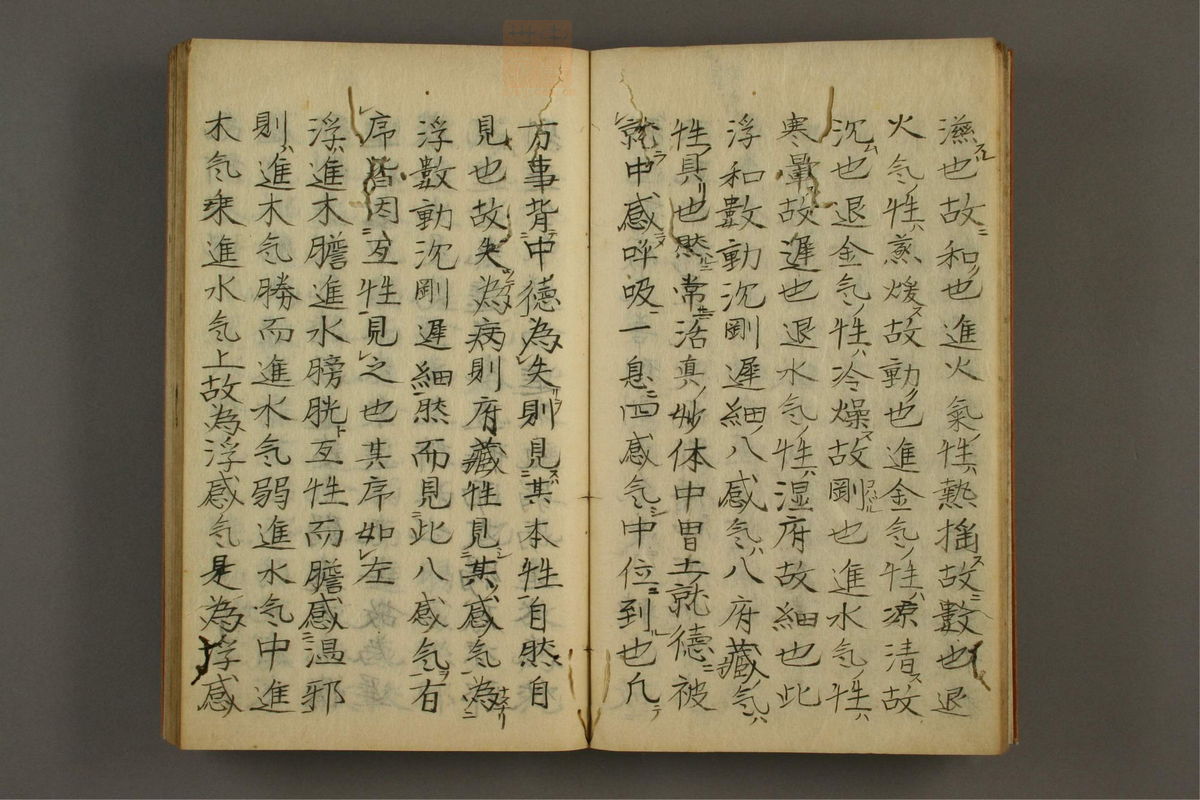 濕也故和也進火氣性熱搖故數也退
火気性蒸煖故動也進金気性凉清故
沉也退金気性冷燥故剛也進水気性
寒暈故遅也退水気性湿府故細也此
浮和數動沉剛遅細八感気八府藏気
性具也然常活真妙体中胃土就德被
就中感呼吸一息四感気中位到也凡
万事背中德為失則見其本性自然自
見也故失為病則府藏性見其感気為
浮數動沉剛遅細然而見此八感気有
序皆因互性見之也其序如左
浮進木膽進水膀胱互性而膽感温邪
則進木気勝而進水気弱進水気中進
木気乗進水気上故為浮感気是為浮感